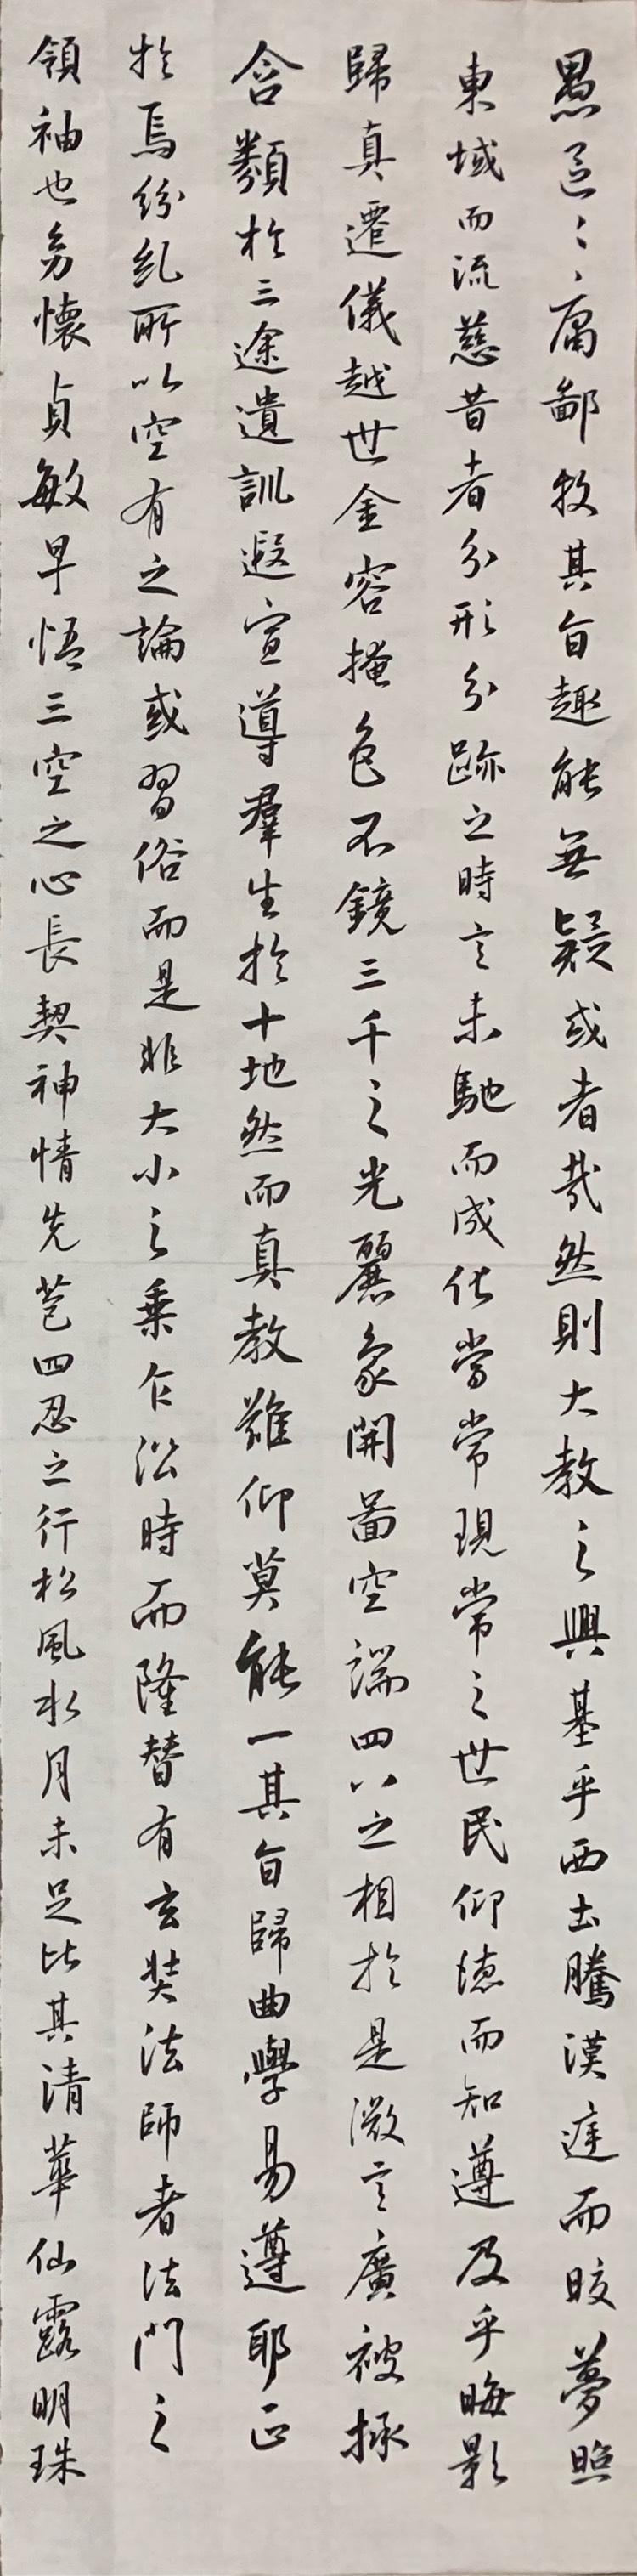 愚區〻庸鄙投其旨趣能無疑或者哉然則大教之興基乎西土騰漢庭而皎夢照
東域而流慈昔者分形分跡之時言未馳而成化當常現常之世民仰德而知遵及乎晦影
歸真遷儀越世金容掩色不鏡三千之光麗象開圖空端四八之相於是微言廣被拯
含類於三途遺訓遐宣導群生於十地然而真教難仰莫能一其旨歸曲學易遵耶正
於焉紛糺所以空有之論或習俗而是非大小之乘乍沿時而隆替有玄奘法師者法門之
領袖也幼懷貞敏早悟三空之心長契神情先苞四忍之行松風水月未足比其清華仙露明珠